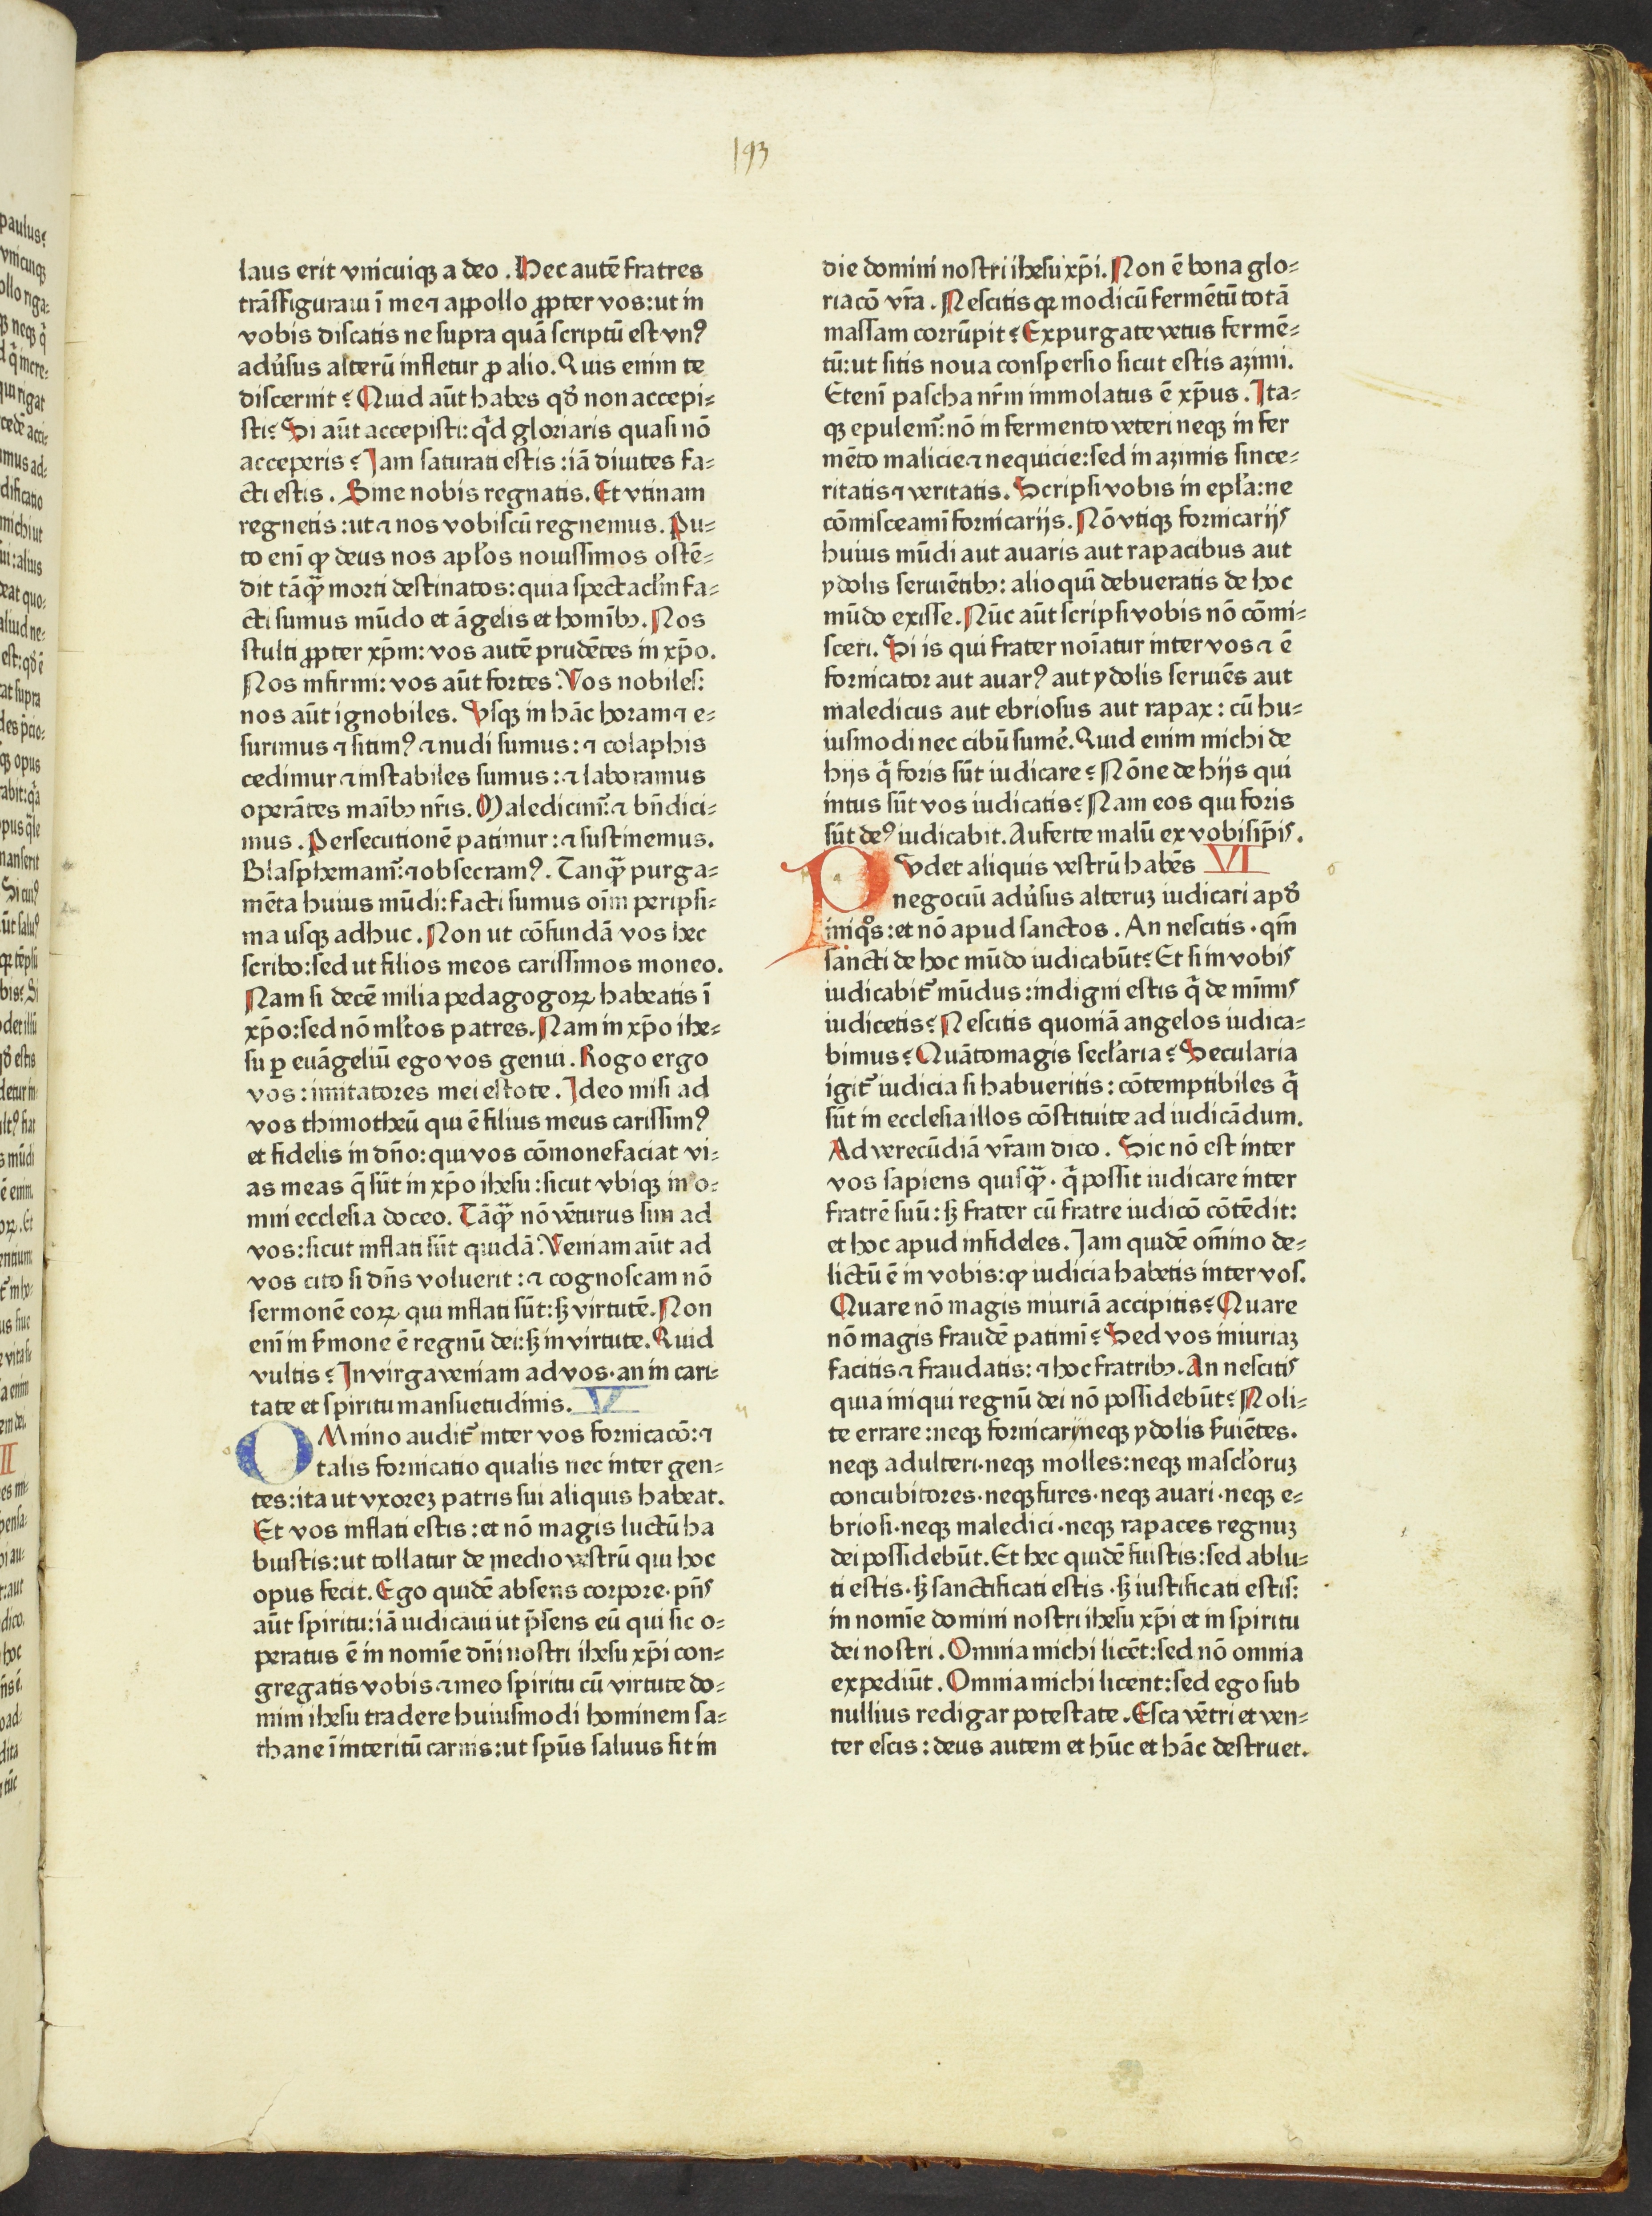 193
laus erit vnicuiqȝ a deo. Hec autē fratres
trāsfiguraui ī me ⁊ appollo ꝓpter vos: ut in
vobis discatis ne supra quā scriptū est vnꝰ
adu̾sus alterū infletur ꝓ alio. Quis enim te
discernit? Quid aūt habes qð non accepi-
sti? Si aūt accepisti: qͥd gloriaris quasi nō
acceperis? Jam saturati estis: iā diuites fa-
cti estis. Sine nobis regnatis. Et vtinam
regnetis: ut ⁊ nos vobiscū regnemus. Pu-
to enī ꝙ deus nos apl'os nouissimos ostē-
dit tāqȝ̄ morti destinatos: quia spectacl'm fa-
cti sumus mūdo et āgelis et homībꝫ. Nos
stulti ꝓpter xp̄m: vos autē prudētes in xp̄o.
Nos infirmi: vos aūt fortes. Vos nobiles:
nos aūt ignobiles. Vsqȝ in hāc horam ⁊ e-
surimus ⁊ sitimꝰ ⁊ nudi sumus: ⁊ colaphis
cedimur ⁊ instabiles sumus: ⁊ laboramus
operātes maībꝫ nr̄is. Maledicimꝰ: ⁊ bn̄dici-
mus. Persecutionē patimur: ⁊ sustinemus.
Blasphemamꝰ: ⁊ obsecramꝰ. Tanqȝ̄ purga-
mēta huius mūdi: facti sumus oīm peripsi-
ma usqȝ adhuc. Non ut cōfundā vos hec
scribo: sed ut filios meos carissimos moneo.
Nam si decē milia pedagogoꝝ habeatis ī
xp̄o: sed nō ml'tos patres. Nam in xp̄o ihe-
su ꝑ euāgeliū ego vos genui. Rogo ergo
vos: imitatores mei estote. Jdeo misi ad
vos thimotheū qui ē filius meus carissimꝰ
et fidelis in dn̄o: qui vos cōmonefaciat vi-
as meas q̄ sūt in xp̄o ihesu: sicut vbiqȝ in o-
mni ecclesia doceo. Tāqȝ̄ nō vēturus sim ad
vos: sicut inflati sūt quidā. Veniam aūt ad
vos cito si dn̄s voluerit: ⁊ cognoscam nō
sermonē eoꝝ qui inflati sūt: sȝ virtutē. Non
enī in s̾mone ē regnū dei: sȝ in virtute. Quid
vultis? Jn virga veniam ad vos· an in cari-
tate et spiritu mansuetudinis. V
OMnino auditᷣ inter vos fornicacō: ⁊
talis fornicatio qualis nec inter gen-
tes: ita ut vxoreȝ patris sui aliquis habeat.
Et vos inflati estis: et nō magis luctū ha
buistis: ut tollatur de medio vestrū qui hoc
opus fecit. Ego quidē absens corpore· pn̄s
aūt spiritu: iā iudicaui ut p̄sens eū qui sic o-
peratus ē in nomīe dn̄i nostri ihesu xp̄i con-
gregatis vobis ⁊ meo spiritu cū virtute do-
mini ihesu tradere huiusmodi hominem sa-
thane ī interitū carnis: ut sp̄us saluus sit in
die domini nostri ihesu xp̄i. Non ē bona glo-
riacō vr̄a. Nescitis qꝛ modicū fermētū totā
massam corrūpit? Expurgate vetus fermē-
tū: ut sitis noua conspersio sicut estis azimi.
Etenī pascha nr̄m immolatus ē xp̄us. Jta-
qȝ epulemꝰ: nō in fermento veteri neqȝ in fer
mēto malicie ⁊ nequicie: sed in azimis since-
ritatis ⁊ veritatis. Scripsi vobis in epl'a: ne
cōmisceamī fornicarijs. Nō vtiqȝ fornicarijs
huius mūdi aut auaris aut rapacibus aut
ydolis seruiētibꝫ: alioquī debueratis de hoc
mūdo exisse. Nūc aūt scripsi vobis nō cōmi-
sceri. Si is qui frater noīatur inter vos ⁊ ē
fornicator aut auarꝰ aut ydolis seruiēs aut
maledicus aut ebriosus aut rapax: cū hu-
iusmodi nec cibū sumē. Quid enim michi de
hijs q̄ foris sūt iudicare? Nōne de hijs qui
intus sūt vos iudicatis? Nam eos qui foris
sūt deꝰ iudicabit. Auferte malū ex vobisip̄is.
PVdet aliquis vestrū habēs VI
negociū adu̾sus alteruȝ iudicari apð
iniqͦs: et nō apud sanctos. An nescitis· qm̄
sancti de hoc mūdo iudicabūt? Et si in vobis
iudicabitᷣ mūdus: indigni estis qͥ de mīmis
iudicetis? Nescitis quoniā angelos iudica-
bimus? Quātomagis secl'aria? Secularia
igitᷣ iudicia si habueritis: cōtemptibiles qͥ
sūt in ecclesia illos cōstituite ad iudicādum.
Ad verecūdiā vr̄am dico. Sic nō est inter
vos sapiens quisqȝ̄· qͥ possit iudicare inter
fratrē suū: sȝ frater cū fratre iudicō cōtēdit:
et hoc apud infideles. Jam quidē om̄ino de-
lictū ē in vobis: ꝙ iudicia habetis inter vos.
Quare nō magis iniuriā accipitis? Quare
nō magis fraudē patimī? Sed vos iniuriaȝ
facitis ⁊ fraudatis: ⁊ hoc fratribꝫ. An nescitis
quia iniqui regnū dei nō possidebūt? Noli-
te errare: neqȝ fornicarij neqȝ ydolis s̾uiētes.
neqȝ adulteri· neqȝ molles: neqȝ mascl'oruȝ
concubitores· neqȝ fures· neqȝ auari· neqȝ e-
briosi· neqȝ maledici· neqȝ rapaces regnuȝ
dei possidebūt. Et hec quidē fuistis: sed ablu-
ti estis· sȝ sanctificati estis· sȝ iustificati estis:
in nomīe domini nostri ihesu xp̄i et in spiritu
dei nostri. Omnia michi licēt: sed nō omnia
expediūt. Omnia michi licent: sed ego sub
nullius redigar potestate. Esca vētri et ven-
ter escis: deus autem et hūc et hāc destruet.